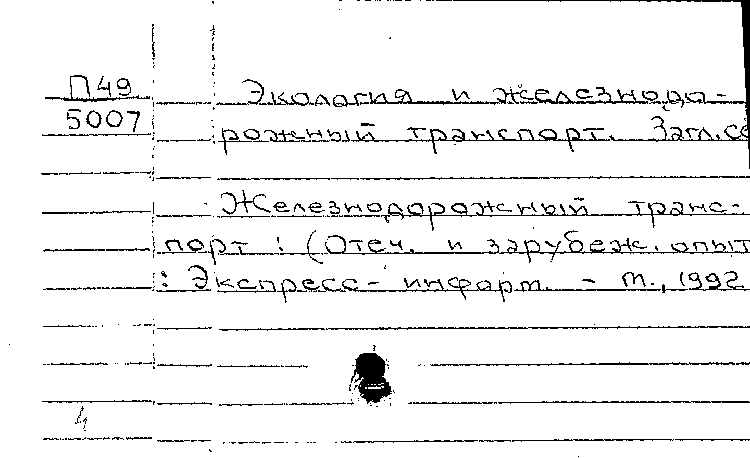 П49
5007
Экология и железнодо-
рожный транспорт. Загл. се
Железнодорожный транс-
порт : (Отеч. и зарубеж. опыт
: Экспресс-информ. - М., 1992